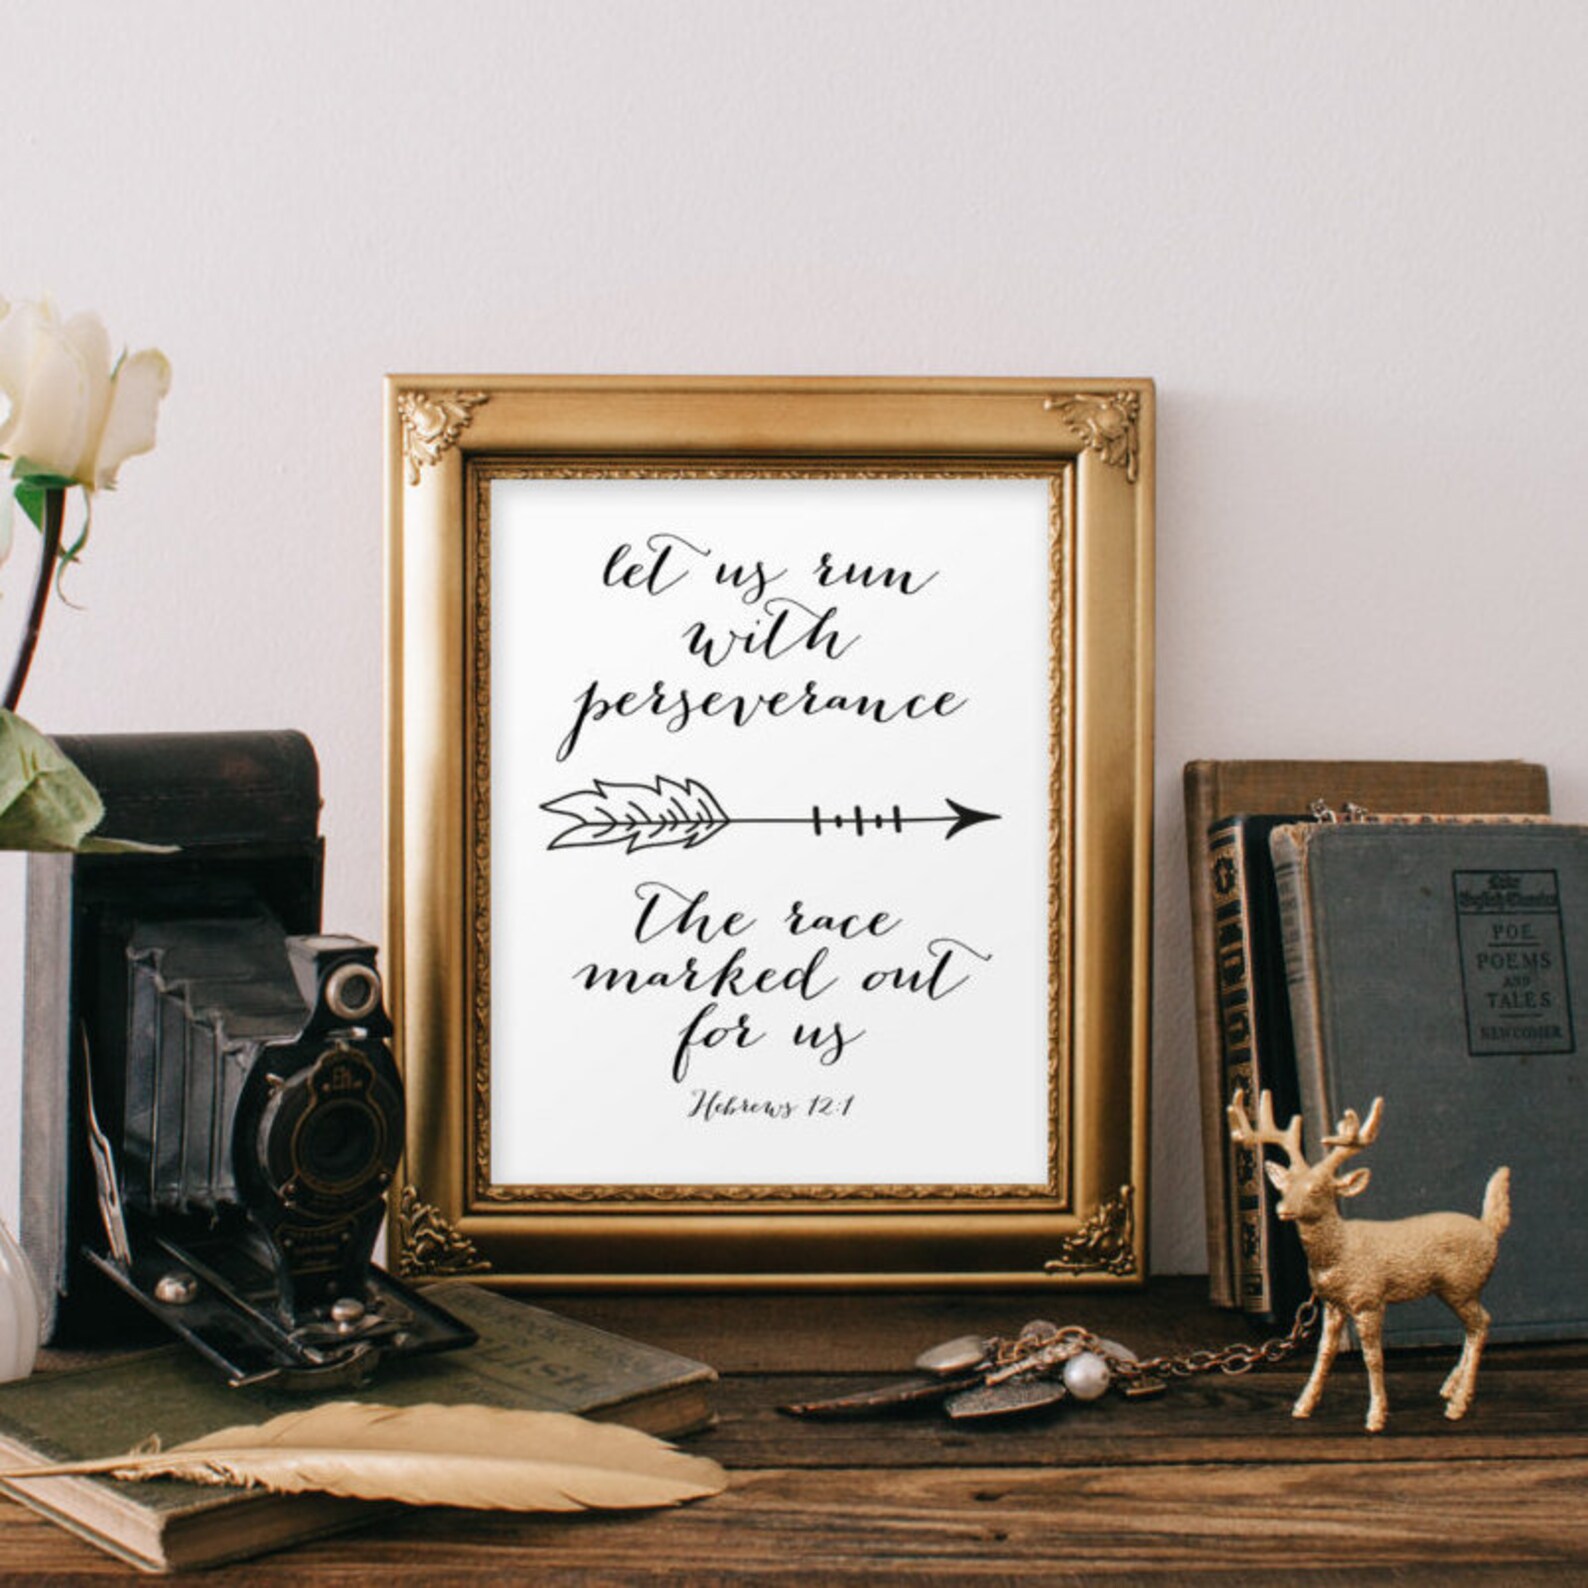 let us run
with
perseverance
the race
marked out
for us
Hebrews 12:1
POE
POEMS
AND
TALES
NEWCOMER